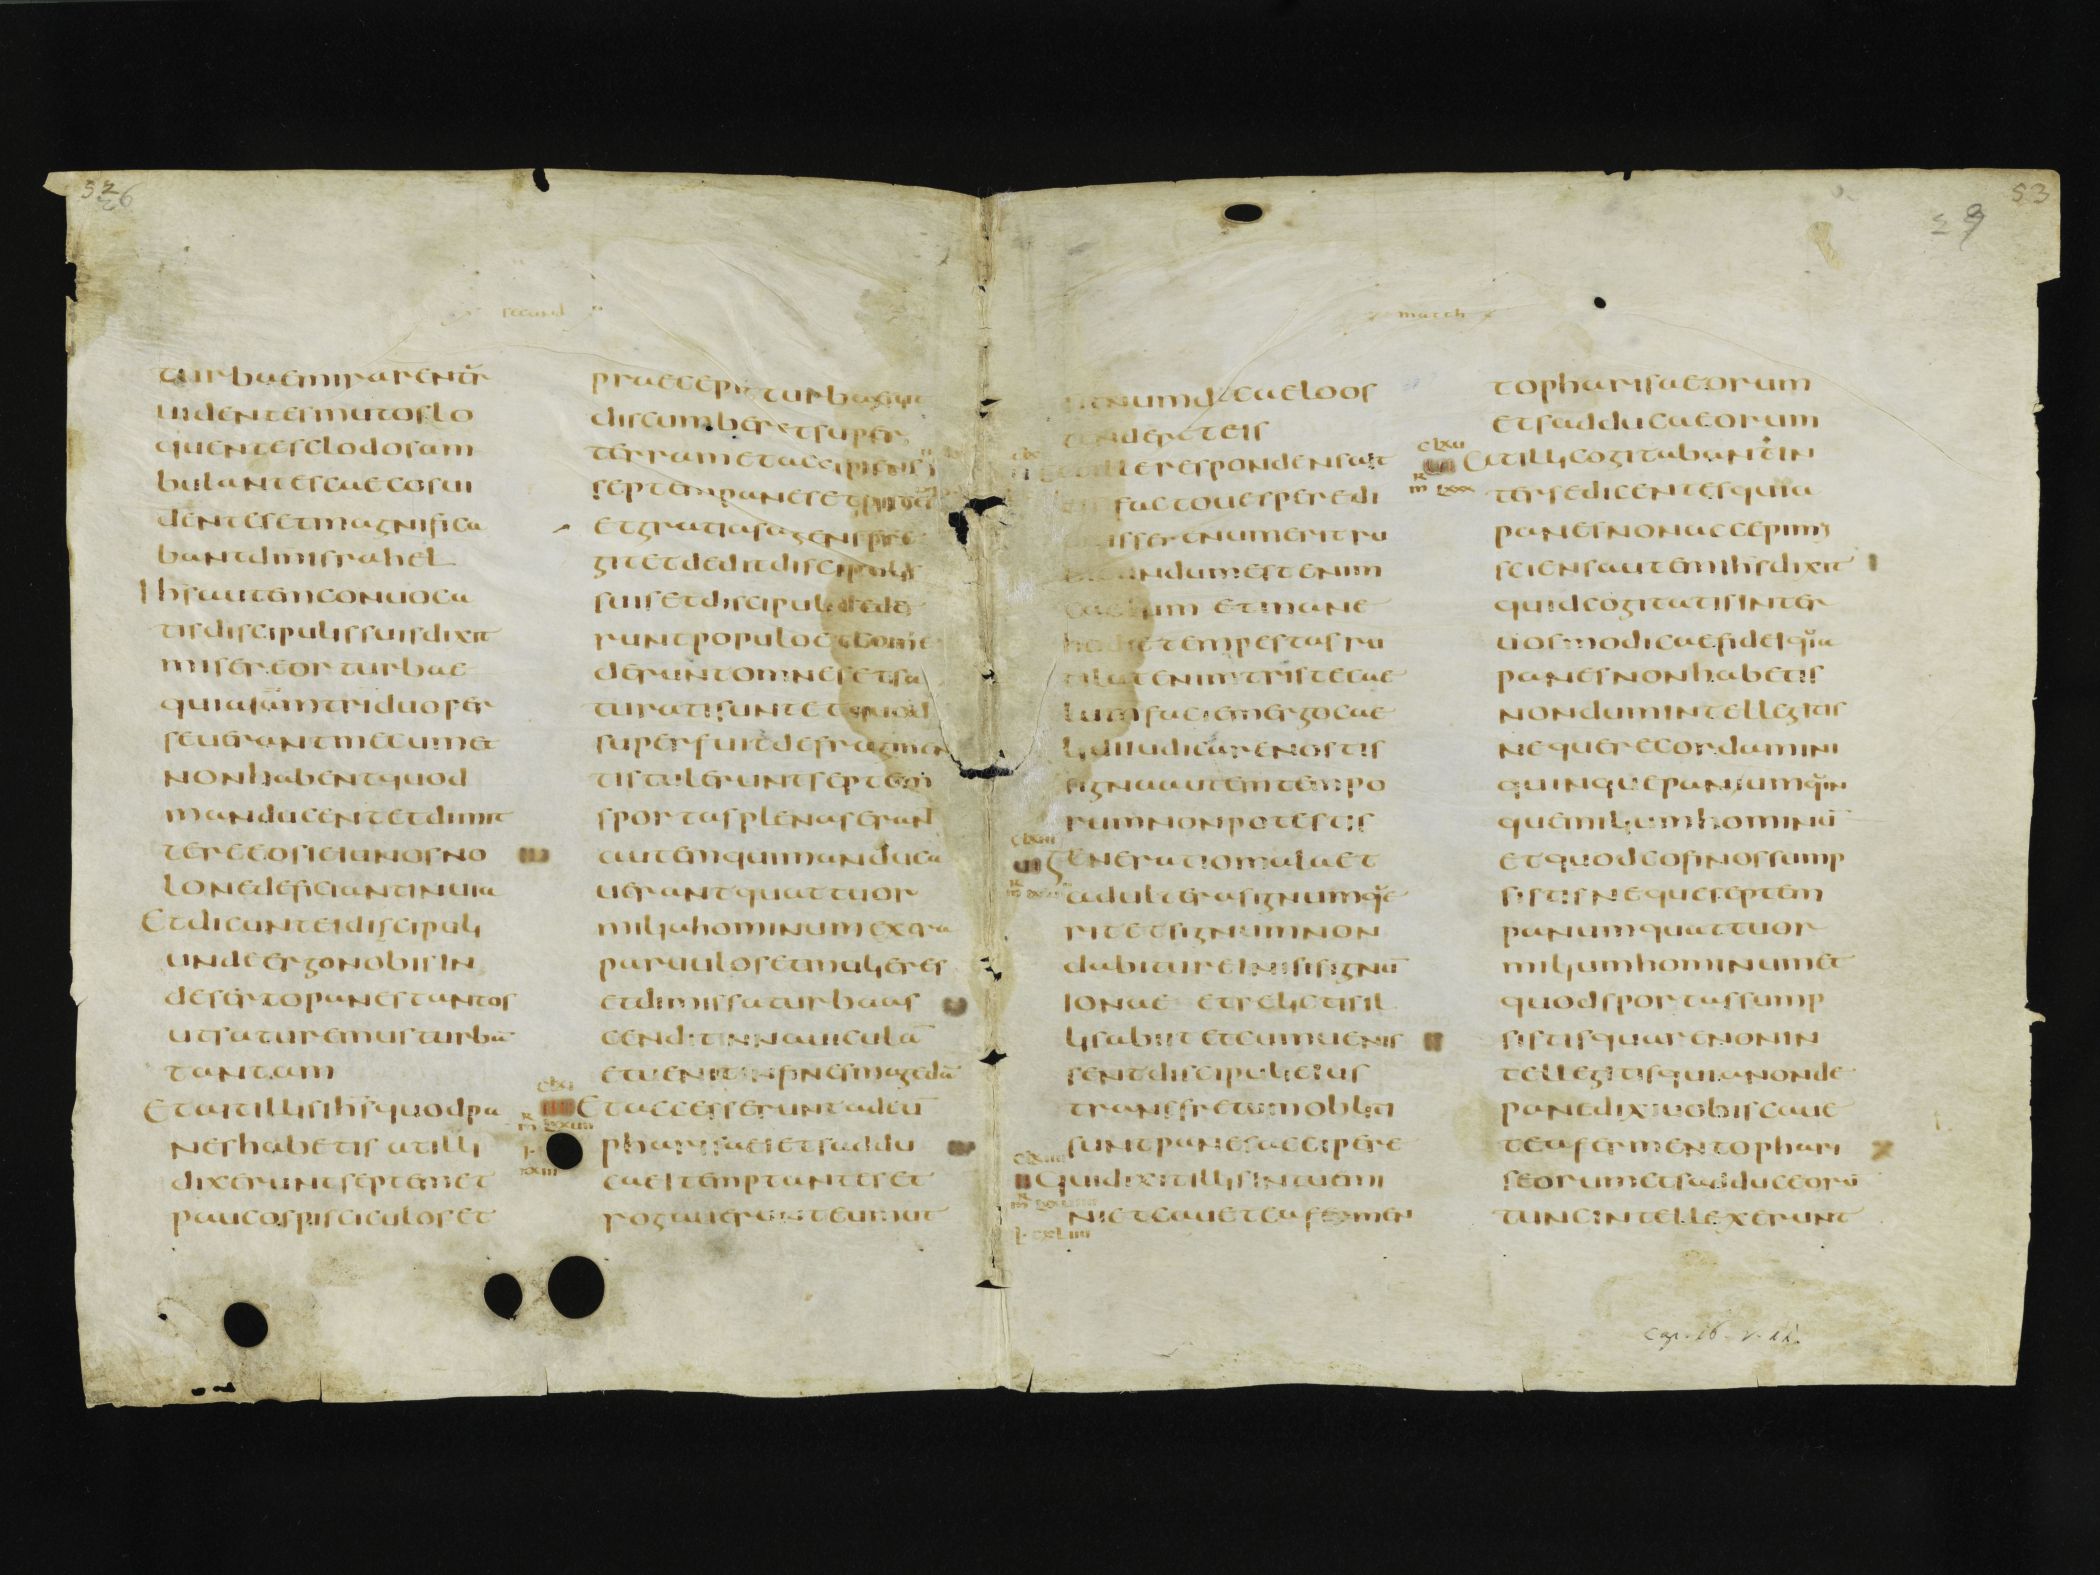 secund
turbaemirarentur
uidentesmutoslo
quentesclodosam
bulantescaecosui
dentesetmagnifica
bantdmisrahel
Ihsautemconuoca
tisdiscipulissuisdixit
misereorturbae
quiaiamtriduoper
seuerantmecumet
nonhabentquod
manducentetdimit
tereeosieiunosno
lonedeficiantinuia
Etdicunteidiscipuli
undeergonobisin
desertopanestantos
utsaturemusturbā
tantam
Etaitillisihsquodpa
neshabetis atilli
dixeruntseptemet
paucospisciculoset
praecepitturbaeut
discumberetsuper
terrametaccipiens
septempanesetpisces
etgratiasagensfre
gitetdeditdiscipulis
suisetdiscipulidede
runtpopuloetcome
deruntomnesetsa
turatisuntetquod
superfuitdefragmen
tistuleruntseptem
sportasplenaserant
autemquimanduca
uerantquattuor
miliahominumextra
paruulosetmulieres
etdimissaturbaas
cenditinnauiculā
etuenitinfinesmagedā
Etaccesseruntadeū
pharisaeietsaddu
caeitemptanteset
rogaueruntеumut
matth
signumdecaeloos
tendereteis
illerespondensait
factouesperedi
cıtisserenumeritru
bicundumestenim
caelum etmane
hodietempestasru
tilatenimtristecae
lumfaciemergocae
lidiiudicarenostis
signaautemtempo
rumnonpotestis
clxiii
Generatiomalaet
adulterasignumque
ritetsignumnon
dabitureinisisignū
ionae etrelictisil
lisabiitetcumuenis
sentdiscipulieius
transfretumobliti
suntpanesaccipere
Quidixitillisintuemi
nietcaueteafermen
topharisaeorum
etsadducaeorum
clxu
Atillicogitabantin
tersedicentesquia
panesnonaccepimus
sciensautemihsdixit
quidcogitatisinter
uosmodicaefideiquia
panesnonhabetis
nondumintellegitis
nequerecordamini
quinquepaniumquin
quemiliumhominū
etquodcofinossump
sistisnequeseptem
panumquattuor
miliumhominumet
quodsportassump
sistisquarenonin
tellegitisquianonde
panedixiuobiscaue
teafermentophari
seorumetsadduceorū
tuncintellexerunt
cap. 16. v. 12.
52
53